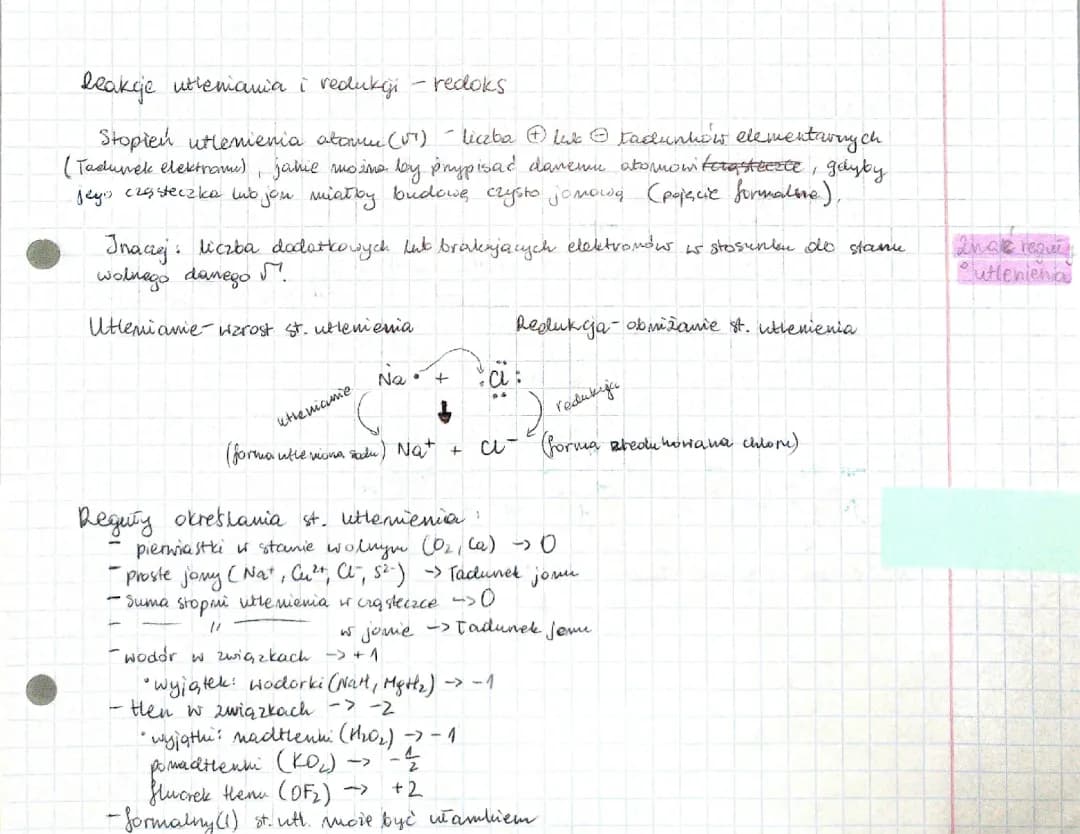 Reakcje utleniania i redukcji - redoks
Stopień utlenienia atomu (VI) - liczba ⊕ lub ⊖ ładunków elementarnych
(ładunek elektronu), jakie można by przypisać danemu atomowi, gdyby
jego cząsteczka lub jon miałby budowę czysto jonową (pojęcie formalne).
Inaczej: liczba dodatkowych lub brakujących elektronów w stosunku do stanu
wolnego danego
Znać reguły
utlenienia
Utlenianie - wzrost st. utlenienia
Redukcja - obniżanie st. utlenienia
Na• + :Cl:
utlenianie
redukcja
(forma utleniona sodu) Na⁺ + Cl⁻ (forma zredukowana chloru)
Reguły określania st. utlenienia:
- pierwiastki w stanie wolnym (O₂, Ca) -> 0
- proste jony (Na⁺, Cu²⁺, Cl⁻, S²⁻) -> ładunek jonu
- suma stopni utlenienia w cząsteczce -> 0
- — 〃 — w jonie -> ładunek jonu
- wodór w związkach -> +1
• wyjątek: wodorki (NaH, MgH₂) -> -1
- tlen w związkach -> -2
• wyjątki: nadtlenki (H₂O₂) -> -1
ponadtlenki (KO₂) -> -1/2
fluorek tlenu (OF₂) -> +2
- formalny(!) st. utl. może być ułamkiem